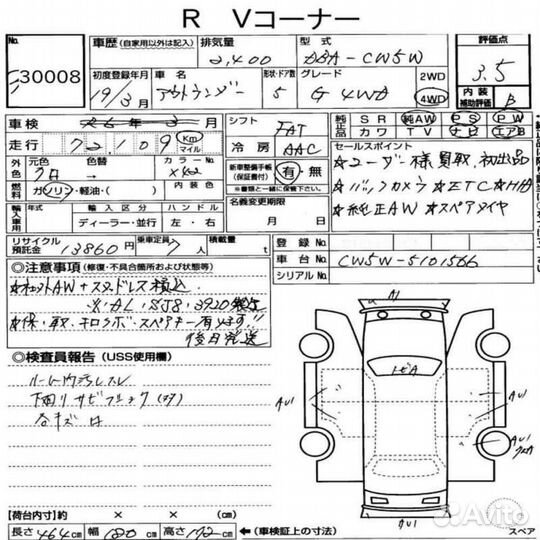 R Vコーナー
No.
30008
車歴 (自家用以外は記入)
排気量
2,400
型式
DBA-CW5W
評価点
3.5
初度登録年月
19/3月
車名
アウトランダー
形状・ドア数
5
グレード
G 4WD
2WD
4WD
内装
補助評価
B
車検
月
シフト
FAT
純正品
SR 純AW PS PW
カワ TV ナビ エアB
走行
72,109
Km
マイル
冷房
AAC
セールスポイント
★ユーザー様買取、初出品
★バックカメラ ★ETC ★HID
★純正AW ★スペアタイヤ
外色
元色
色替
カラーNo.
X42
新車整備手帳
(保証書付)
有・無
※書類と一緒に保管して下さい。
燃料
ガソリン・軽油・( )
内装色
名義変更期限
月 日
輸入車用
年式
輸入区分
ハンドル
ディーラー・並行
左・右
リサイクル
預託金
13860円
乗車定員
7人
積載量
t
登録No.
車台No.
CW5W-5101566
シリアルNo.
◎注意事項(修復・不具合箇所および状態等)
★保・取、キロクボ・スペアキー有ります!!
後日発送
◎検査員報告(USS使用欄)
ルーム内汚レスレ
下廻りサビ
各キズ
A1
AU1
AU1
AU1
AU1
【荷台内寸】約 × × (cm)
長さ 464cm 幅 180cm 高さ 172cm ←(車検証上の寸法)
スペア
Avito